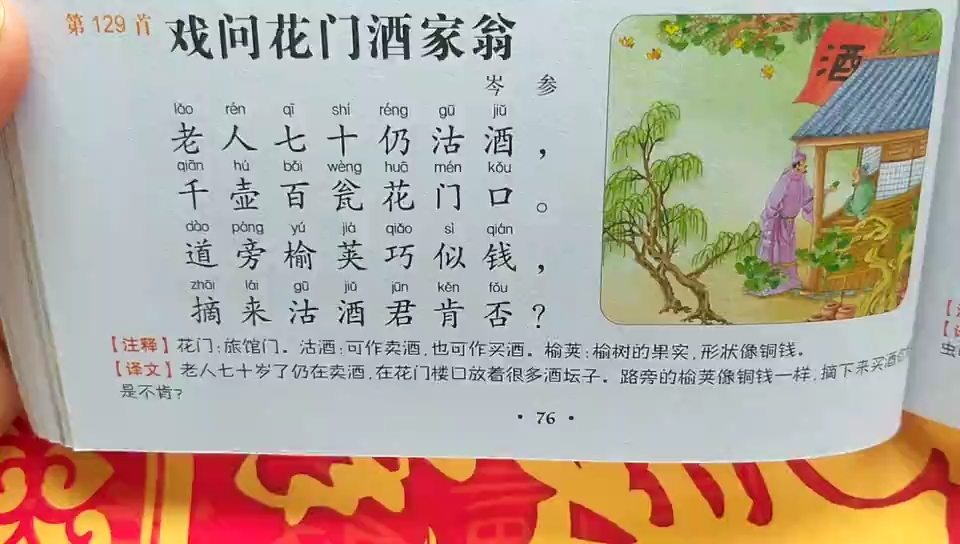 第 129 首 戏问花门酒家翁
岑 参
lǎo rén qī shí réng gū jiǔ
老 人 七 十 仍 沽 酒 ，
qiān hú bǎi wèng huā mén kǒu
千 壶 百 瓮 花 门 口 。
dào páng yú jiá qiǎo sì qián
道 旁 榆 荚 巧 似 钱 ，
zhāi lái gū jiǔ jūn kěn fǒu
摘 来 沽 酒 君 肯 否 ？
【注释】花门：旅馆门。沽酒：可作卖酒，也可作买酒。榆荚：榆树的果实，形状像铜钱。
【译文】老人七十岁了仍在卖酒，在花门楼口放着很多酒坛子。路旁的榆荚像铜钱一样，摘下来买酒
是不肯？
· 76 ·
酒